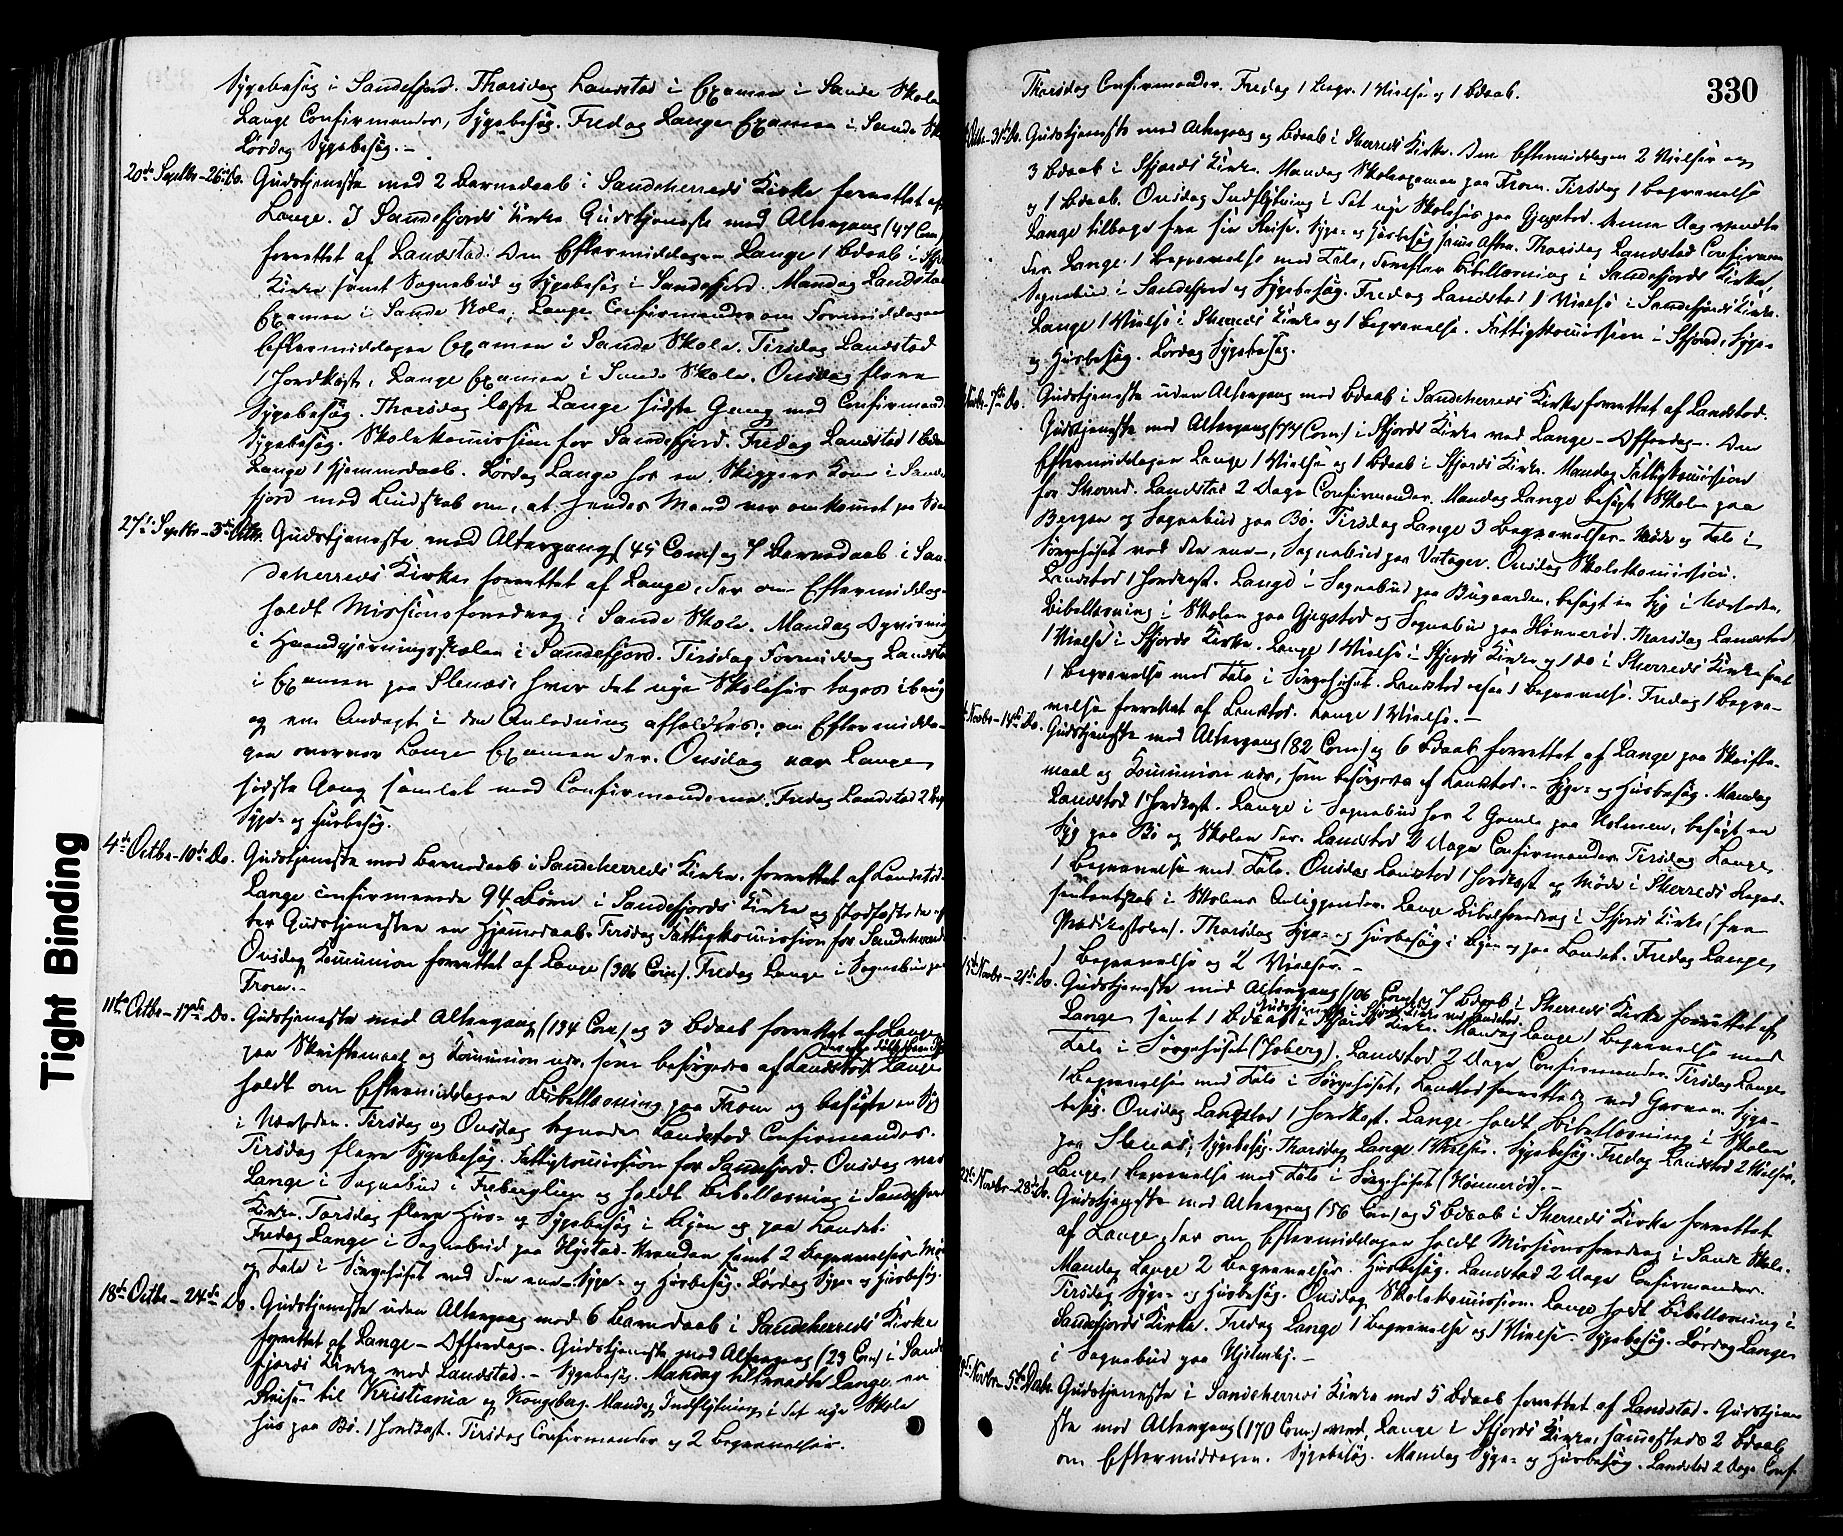 Sygebesøg i Sandefjord. Thorsdag Landstad i Examen i Sande Skole
Lange Confirmander, Sygebesøg. Fredag Lange Examen i Sande Sk
Lørdag Sygebesøg. –
20de Septbr – 26de Do. Gudstjeneste med 2 Barnedaab i Sandeherreds Kirke forrettet af
Lange. I Sandefjords Kirke Gudstjeneste med Altergang (47 Com)
forrettet af Landstad. Om Eftermiddagen Lange 1 Bdaab i Sfj
Kirke samt Sognebud og Sygebesøg i Sandefjord. Mandag Landstad
Examen i Sande Skole, Lange Confirmander om Formiddagen
Eftermiddagen Examen i Sande Skole. Tirsdag Landstad
1 Jordkast, Lange Examen i Sande Skole. Onsdag flere
Sygebesøg. Thorsdag læste Lange sidste Gang med Confirmand
Sygebesøg. Skolekommission for Sandefjord. Fredag Landstad 1 Bdaab
Lange 1 Hjemmedaab. Lørdag Lange hos en Skippers Kone i Sande
fjord med Budskab om, at hendes Mand var omkommet paa Søen
27de Septbr – 3die Octbr. Gudstjeneste med Altergang (45 Com) og 7 Barnedaab i San-
deherreds Kirke forrettet af Lange, der om Eftermiddag
holdt Missionsforedrag i Sande Skole. Mandag
i Haandgjerningsskolen i Sandefjord. Tirsdag Formiddag Landstad
i Examen paa Stenaas, hvor det nye Skolehus toges i brug
og en Andagt i den Anledning afholdtes; om Eftermidda-
gen overvar Lange Examen der. Onsdag var Lange
sidste Gang samlet med Confirmanderne. Fredag Landstad 2
Syge- og Husbesøg.
4de Octbr – 10de Do. Gudstjeneste med Barnedaab i Sandeherreds Kirke, forrettet af Landstad.
Lange confirmerede 94 Børn i Sandefjords Kirke og stadfæstede ef-
ter Gudstjenesten en Hjemmedaab. Tirsdag Fattigkommission for Sandeherred
Onsdag Kommunion forrettet af Lange (306 Com). Fredag Lange i Sognebud paa
Fram. –
11te Octbr – 17de Do. Gudstjeneste med Altergang (134 Com) og 3 Bdaab forrettet af Lange
paa Skriftemaal og Kommunion nær, som besørgedes af Landstad. Lange
holdt om Eftermiddagen Bibellæsning paa Fram og besøgte en Syg
i Næsteden. Tirsdag og Onsdag Landstad Confirmander.
Tirsdag flere Sygebesøg. Fattigkommission for Sandefjord. Onsdag var
Lange i Sognebud i Freberglien og holdt Bibellæsning i Sandefjords
Kirke. Torsdag flere Hus- og Sygebesøg i Byen og paa Landet.
Fredag Lange i Sognebud paa Hystad samt 2 Begravelser – Møde
og Tale i Sørgehuset ved den ene – Syge- og Husbesøg. Lørdag Syge- og Husbesøg.
18de Octbr – 24de Do. Gudstjeneste uden Altergang med 6 Barnedaab i Sandeherreds Kirke
forrettet af Lange – Offerdag –. Gudstjeneste med Altergang (23 Com) i Sande
fjords Kirke ved Landstad. – Sygebesøg. Mandag tiltraadte Lange en
Reise til Kristiania og Kongsberg. Mandag Indflytning i det nye Skole
hus paa Bø. 1 Jordkast. Tirsdag Confirmander og 2 Begravelser.
330
Thorsdag Confirmander. Fredag 1 Begr. 1 Vielse og 1 Bdaab.
Octbr – 31te Do. Gudstjeneste med Altergang og Bdaab i Sherreds Kirke. Om Eftermiddagen 2 Vielser og
3 Bdaab i Sfjords Kirke. Mandag Skoleexamen paa Fram. Tirsdag 1 Begravelse
og 1 Bdaab. Onsdag Indflytning i det nye Skolehus paa Gjegstad. Samme Dag vendte
Lange tilbage fra sin Reise. Syge- og Husbesøg samme Aften. Thorsdag Landstad Confirman
der. Lange 1 Begravelse med Tale, derefter Bibellæsning i Sandefjords Kirke,
Sognebud i Sandefjord og Sygebesøg. Fredag Landstad 1 Vielse i Sandefjords Kirke.
Lange 1 Vielse i Sherreds Kirke og 1 Begravelse. Fattigkommission i Sfjord, Syge-
og Husbesøg. Lørdag Sygebesøg.
Novbr – 7de Do. Gudstjeneste uden Altergang med Bdaab i Sandeherreds Kirke forrettet af Landstad.
Gudstjeneste med Altergang (77 Com) i Sfjords Kirke ved Lange – Offerdag –. Om
Eftermiddagen Lange 1 Vielse og 1 Bdaab i Sfjords Kirke. Mandag Fattigkommission
for Sherred. Landstad 2 Dage Confirmander. Mandag Lange besøgt Skolen paa
Bergan og Sognebud paa Bø. Tirsdag Lange 3 Begravelser – Møde og Tale i
Sørgehuset ved den ene –, Sognebud paa Vatager. Onsdag Skolekommission.
Landstad 1 Jordkast. Lange i Sognebud paa Bugaarden, besøgt en Syg i Næsteden,
Bibellæsning i Skolen paa Gjegstad og Sognebud paa Hønnerød. Thorsdag Landstad
1 Vielse i Sfjords Kirke. Lange 1 Vielse i Sfjords Kirke og 1 do i Sherreds Kirke samt
1 Begravelse med Tale i Sørgehuset. Landstad ogsaa 1 Begravelse. Fredag 1 Begra-
velse forrettet af Landstad. Lange 1 Vielse. –
Novbr – 14de Do. Gudstjeneste med Altergang (82 Com) og 6 Bdaab forrettet af Lange paa Skrifte-
maal og Kommunion nær, som besørgedes af Landstad. – Syge- og Husbesøg. Mandag
Landstad 1 Jordkast. Lange i Sognebud hos 2 Gamle paa Holmen, besøgt en
Syg paa Bø og Skolen der. Landstad 2 Dage Confirmander. Tirsdag Lange
1 Begravelse med Tale. Onsdag Landstad 1 Jordkast og Møde i Sherreds Repræ-
sentantskab i Skolens Anliggender. Lange Bibelforedrag i Sfjords Kirke (fra
Prædikestolen). Thorsdag Syge- og Husbesøg i Byen og paa Landet. Fredag Lange
1 Begravelse og 2 Vielser. –
15de Novbr – 21de Do. Gudstjeneste med Altergang (106 Com) og 7 Bdaab i Sherreds Kirke forrettet af
Gudstjeneste i Sfjords Kirke ved Landstad.
Lange samt 1 Bdaab i Sfjords Kirke. Mandag Lange 1 Begravelse med
Tale i Sørgehuset (Joberg). Landstad 2 Dage Confirmander. Tirsdag Lange
1 Begravelse med Tale i Sørgehuset, Landstad forrettede ved Graven. Syge-
besøg. Onsdag Landstad 1 Jordkast. Lange holdt Bibellæsning i Skolen
paa Stenaas, Sygebesøg. Thorsdag Lange 1 Vielse. Sygebesøg. Fredag Landstad 2 Vielser,
Lange 1 Begravelse med Tale i Sørgehuset (Hønnerød). –
22de Novbr – 28de Do. Gudstjeneste med Altergang (56 Com) og 5 Bdaab i Sherreds Kirke forrettet
af Lange, der om Eftermiddagen holdt Missionsforedrag i Sande Skole.
Mandag Lange 2 Begravelser. Husbesøg. Landstad 2 Dage Confirmander.
Tirsdag Syge- og Husbesøg. Onsdag Skolekommission. Lange holdt Bibellæsning i
Sandefjords Kirke. Fredag Lange 1 Begravelse og 1 Vielse – Sygebesøg. Lørdag Lange
i Sognebud paa Hjelmby. –
Novbr – 5te Decbr. Gudstjeneste i Sandeherreds Kirke med 5 Bdaab forrettet af Landstad. Gudstjene
ste med Altergang (170 Com) ved Lange i Sfjords Kirke, sammesteds 2 Bdaab
om Eftermiddagen. Sygebesøg. Mandag Syge- og Husbesøg. Landstad 2 Dage Conf.
Tight Binding